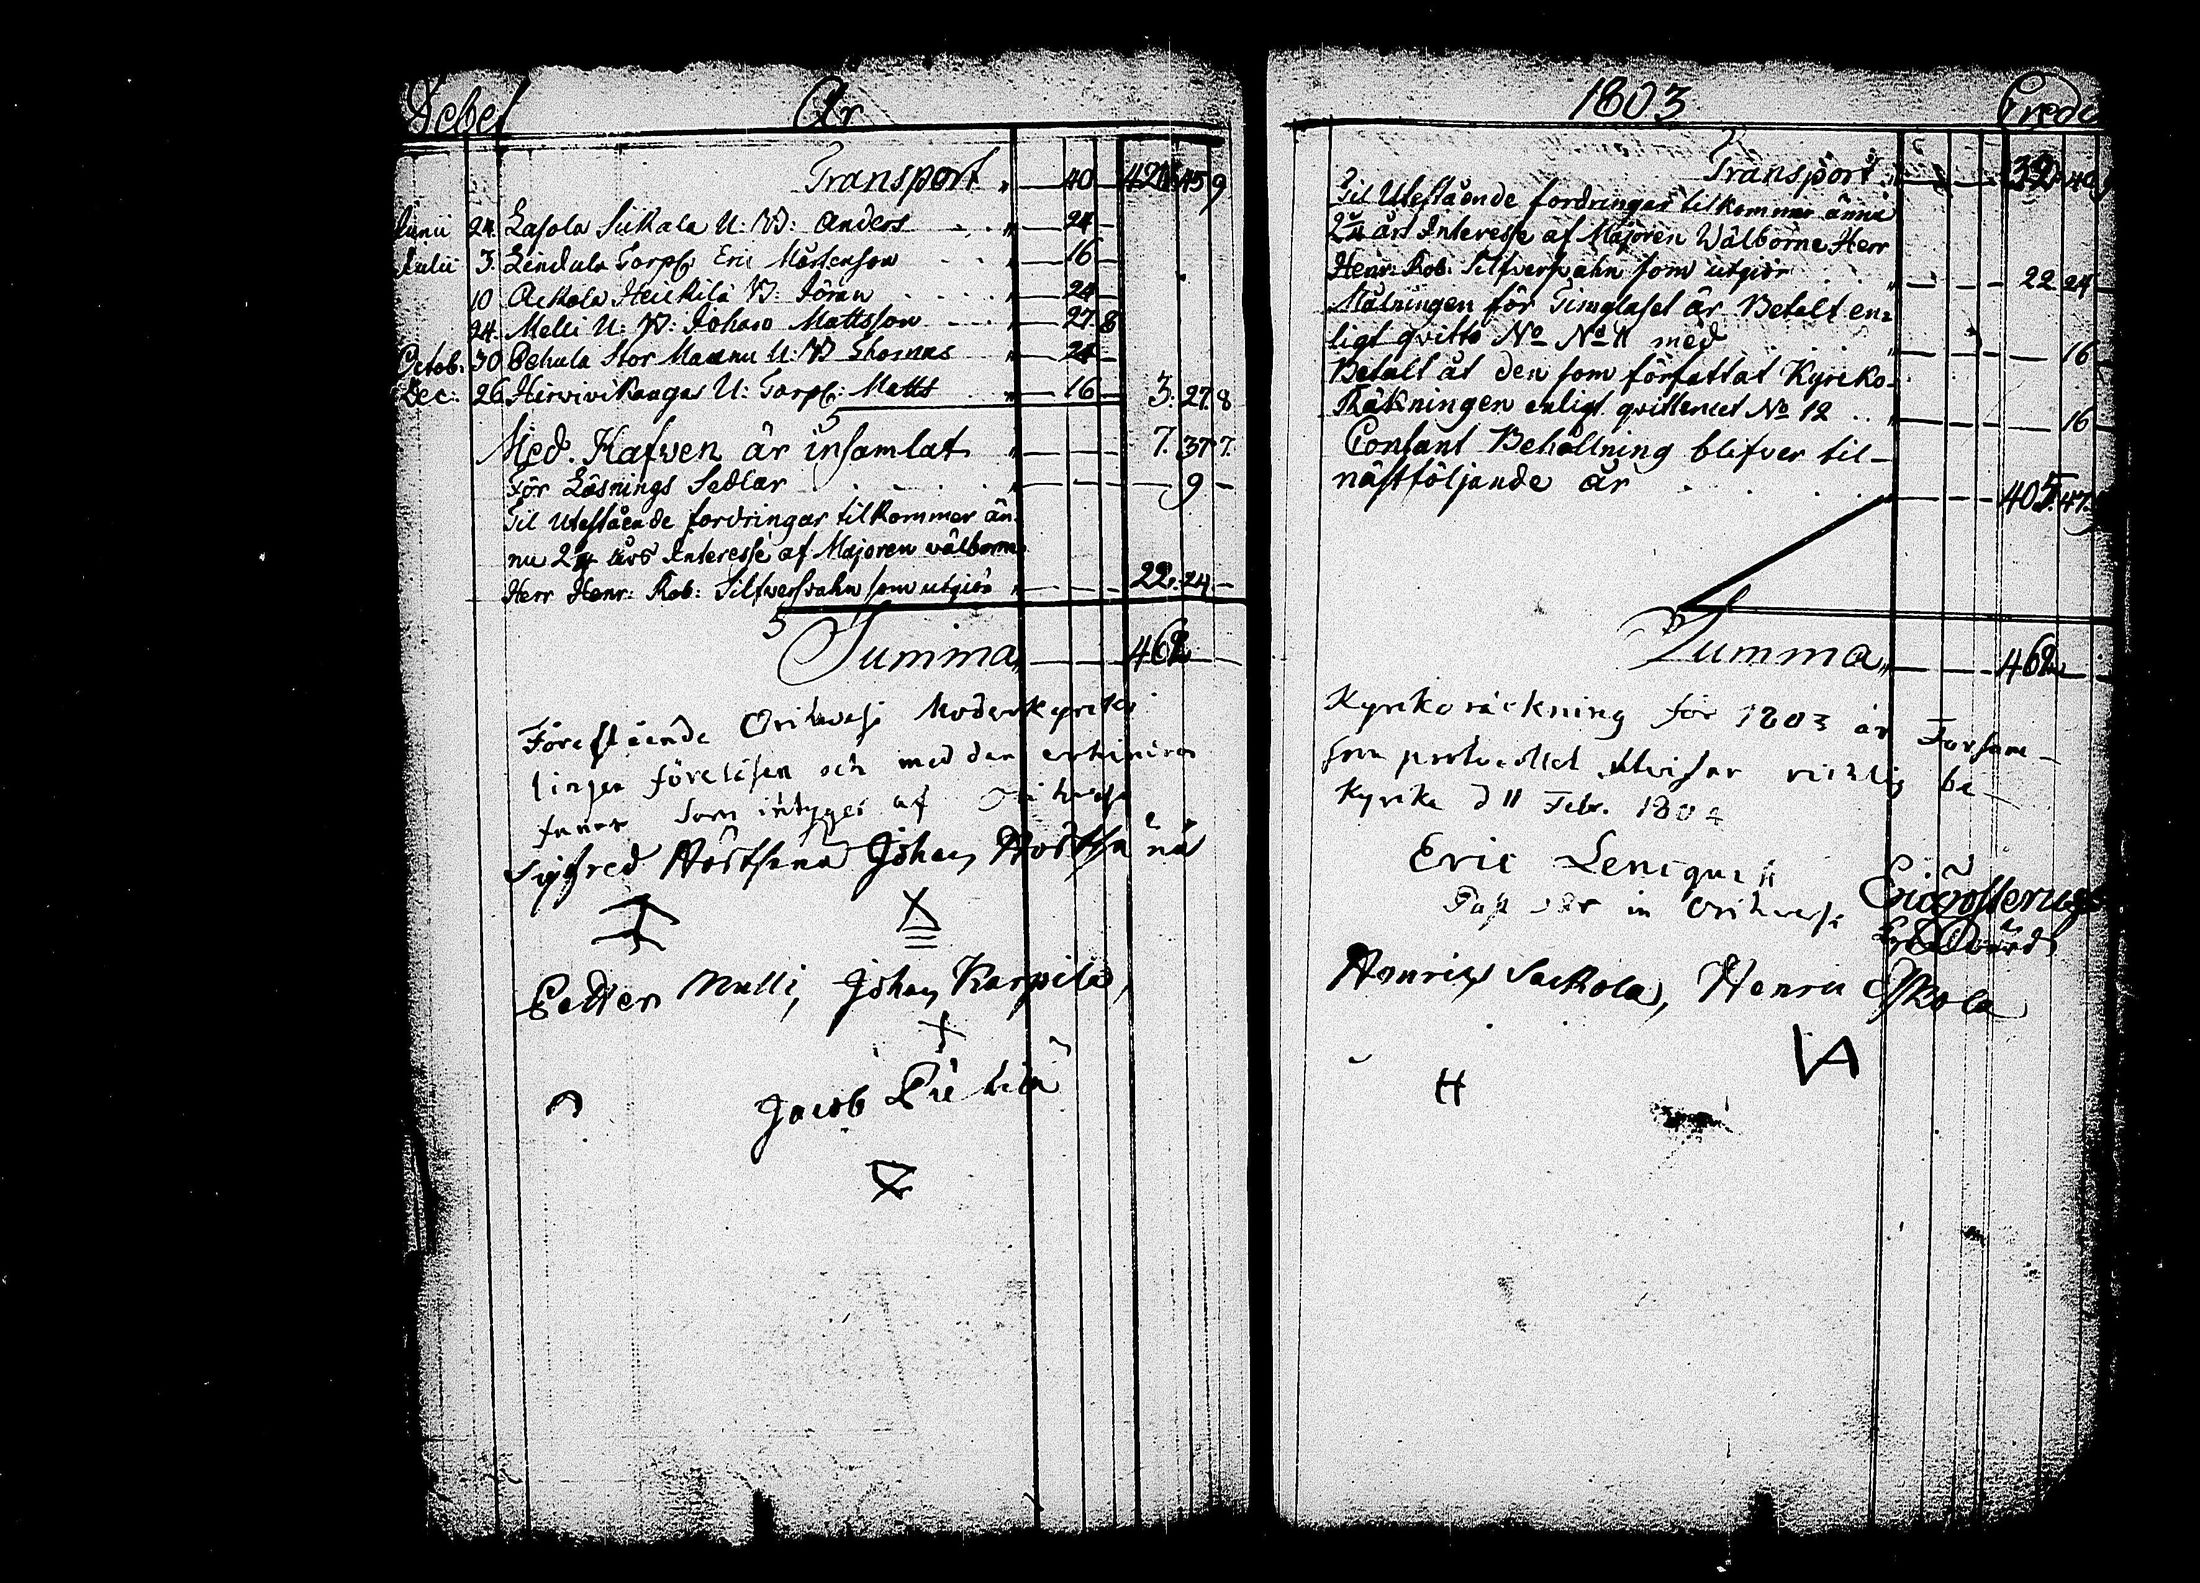 Debet År
Transport " — 40 — 428 45 9
Junii 24. Lasola Sukala U: W: Anders " — 24 —
Julii 3. Lindula Torp: Eric Mårtenson " — 16 —
10 Ackola Heickilä W: Jöran " — 24 —
24. Melli U: W: Johan Mattsson " — 27 8
Octob. 30 Pehula Stor Mannu U: W Thomas " — 24 —
Dec: 26 Hirvivikangas U: Torp: Matts " — 16 — 3. 27. 8
Med. Hafven är insamlat " — — — 7. 37 7.
För Låsnings Sedlar " — — — — 9 —
Til Utestående fordringar tilkommer än-
nu 2 års Interesse af Majoren välborne
Herr Henr: Rob: Silfversvahn som utgiör " — — — 22. 24. —
Summa " — — 462
Förestående Orihvesi Moderkyrko
lingen föreläsen och med den
funnen som intyges af Orihvesi
Sigfred Hörtsänä Johan Hörtsänä
Petter Melli, Johan Karpila,
Jacob
1803 Credit
Transport " — — — 32. 40
Til Utestående fordringar tilkommer ännu
2 års Interesse af Majoren Wälborne Herr
Henr: Rob: Silfversvahn som utgiör " — — — 22 24 —
Målningen för Timglaset är Betalt en-
ligt qvitto No No 11 med " — — — — 16 —
Betalt åt den som författat Kyrko-
Räkningen enligt qvittencet No 12 " — — — — 16 —
Contant Behållning blifver til-
nästföljande år — — — 405. 47.
Summa " — — — 462
Kyrko räckning för 1803 är Försam-
som protocollet utvisar richtig be-
Kyrka d 11 Febr. 1804
Eric Lencquist
Pastor in Orihvesi
Henrich Sackola, Henric Eskola
H